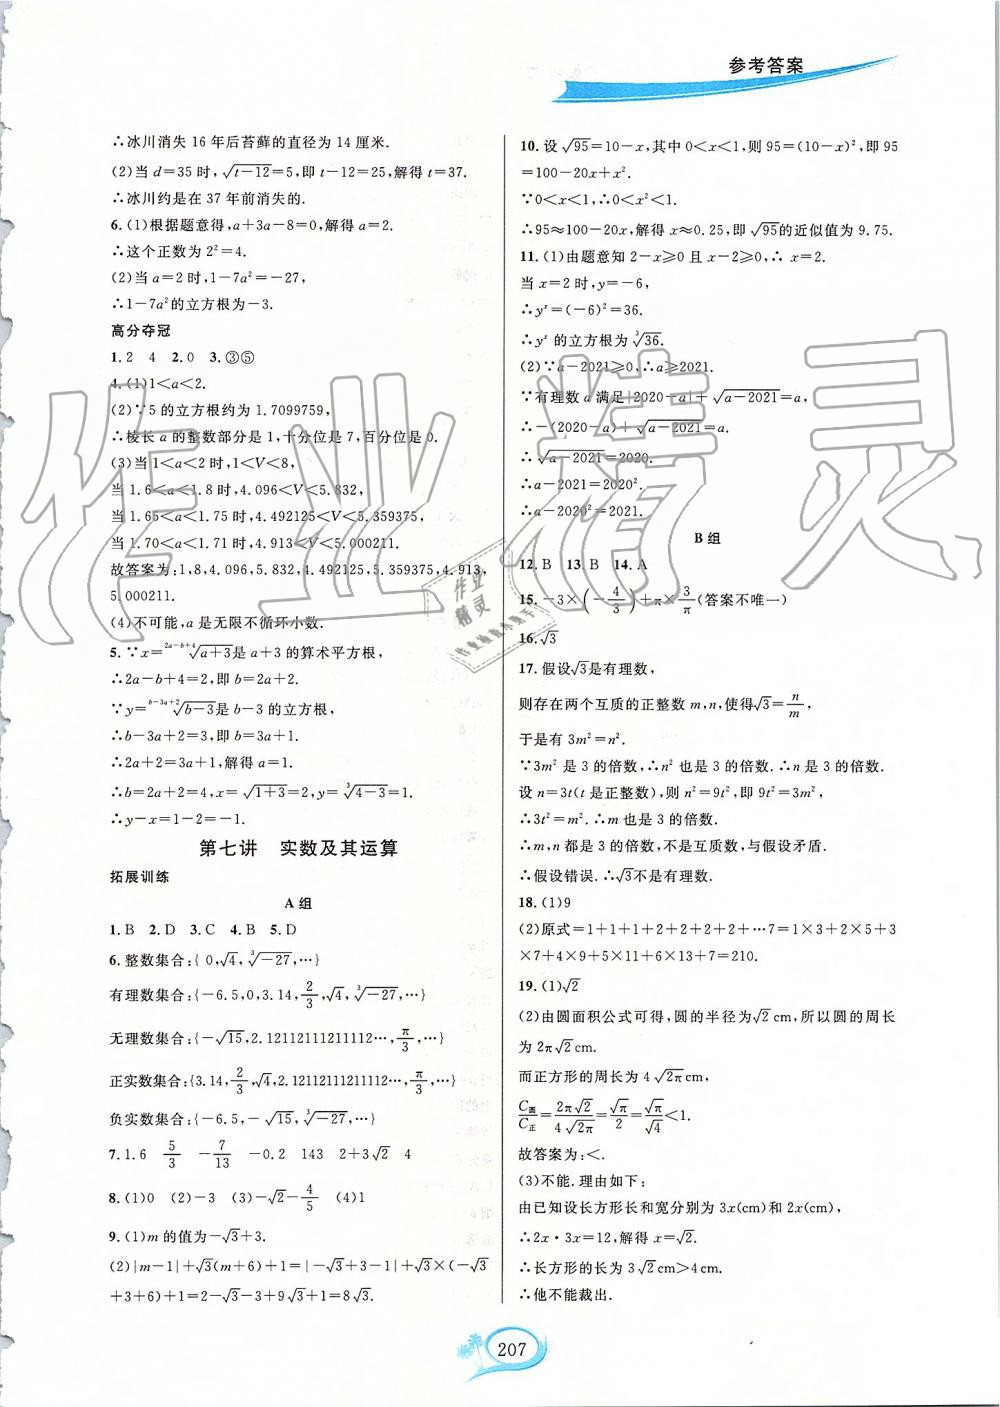 参考答案
∴冰川消失 16 年后苔藓的直径为 14 厘米.
(2)当 d=35 时,√(t-12)=5,即 t-12=25,解得 t=37.
∴冰川约是在 37 年前消失的.
6.(1)根据题意得,a+3a-8=0,解得 a=2.
∴这个正数为 2²=4.
(2)当 a=2 时,1-7a²=-27,
∴1-7a²的立方根为-3.
高分夺冠
1.2 4 2.0 3.③⑤
4.(1)1<a<2.
(2)∵5 的立方根约为 1.7099759,
∴棱长 a 的整数部分是 1,十分位是 7,百分位是 0.
(3)当 1<a<2 时,1<V<8,
当 1.6<a<1.8 时,4.096<V<5.832,
当 1.65<a<1.75 时,4.492125<V<5.359375,
当 1.70<a<1.71 时,4.913<V<5.000211.
故答案为:1,8,4.096,5.832,4.492125,5.359375,4.913,
5.000211.
(4)不可能,a 是无限不循环小数.
5.∵x=²ᵃ⁻ᵇ⁺⁴√(a+3)是 a+3 的算术平方根,
∴2a-b+4=2,即 b=2a+2,
∵y=ᵇ⁻³ᵃ⁺²√(b-3)是 b-3 的立方根,
∴b-3a+2=3,即 b=3a+1.
∴2a+2=3a+1,解得 a=1.
∴b=2a+2=4,x=√(1+3)=2,y=³√(4-3)=1.
∴y-x=1-2=-1.
第七讲 实数及其运算
拓展训练
A 组
1.B 2.D 3.C 4.B 5.D
6.整数集合:{ 0,√4,³√-27,…}
有理数集合:{-6.5,0,3.14,2/3,√4,³√-27,…}
无理数集合:{-√15,2.12112111211112…,π/3,…}
正实数集合:{3.14,2/3,√4,2.12112111211112…,π/3,…}
负实数集合:{-6.5,-√15,³√-27,…}
7.1.6 5/3 -7/13 -0.2 143 2+3√2 4
8.(1)0 (2)-3 (3)√2-4/5 (4)1
9.(1)m 的值为-√3+3.
(2)|m-1|+√3(m+6)+1=|-√3+3-1|+√3×(-√3
+3+6)+1=2-√3-3+9√3+1=8√3.
10.设√95=10-x,其中 0<x<1,则 95=(10-x)²,即 95
=100-20x+x².
∵0<x<1,∴0<x²<1.
∴95≈100-20x,解得 x≈0.25,即√95的近似值为 9.75.
11.(1)由题意知 2-x≥0 且 x-2≥0,∴ x=2.
当 x=2 时,y=-6,
∴yˣ=(-6)²=36.
∴yˣ 的立方根为³√36.
(2)∵a-2021≥0,∴a≥2021.
∵有理数 a 满足|2020-a|+√(a-2021)=a,
∴-(2020-a)+√(a-2021)=a.
∴√(a-2021)=2020.
∴a-2021=2020².
∴a-2020²=2021.
B 组
12.B 13.B 14.A
15.-3×(-4/3)+π×3/π(答案不唯一)
16.√3
17.假设√3是有理数,
则存在两个互质的正整数 m,n,使得√3=n/m,
于是有 3m²=n².
∵3m² 是 3 的倍数,∴n² 也是 3 的倍数.∴n 是 3 的倍数.
设 n=3t(t 是正整数),则 n²=9t²,即 9t²=3m²,
∴3t²=m².∴m 也是 3 的倍数.
∴m,n 都是 3 的倍数,不是互质数,与假设矛盾.
∴假设错误.∴√3不是有理数.
18.(1)9
(2)原式=1+1+1+2+2+2+2+2+…7=1×3+2×5+3
×7+4×9+5×11+6×13+7×7=210.
19.(1)√2
(2)由圆面积公式可得,圆的半径为√2cm,所以圆的周长
为 2π√2cm.
而正方形的周长为 4√2πcm,
C圆/C正=2π√2/4√2π=√π/2=√π/√4<1.
故答案为:<.
(3)不能.理由如下:
由已知设长方形长和宽分别为 3x(cm)和 2x(cm),
∴2x·3x=12,解得 x=√2.
∴长方形的长为 3√2cm>4cm.
∴他不能裁出.
207
作业精灵
作业
精灵